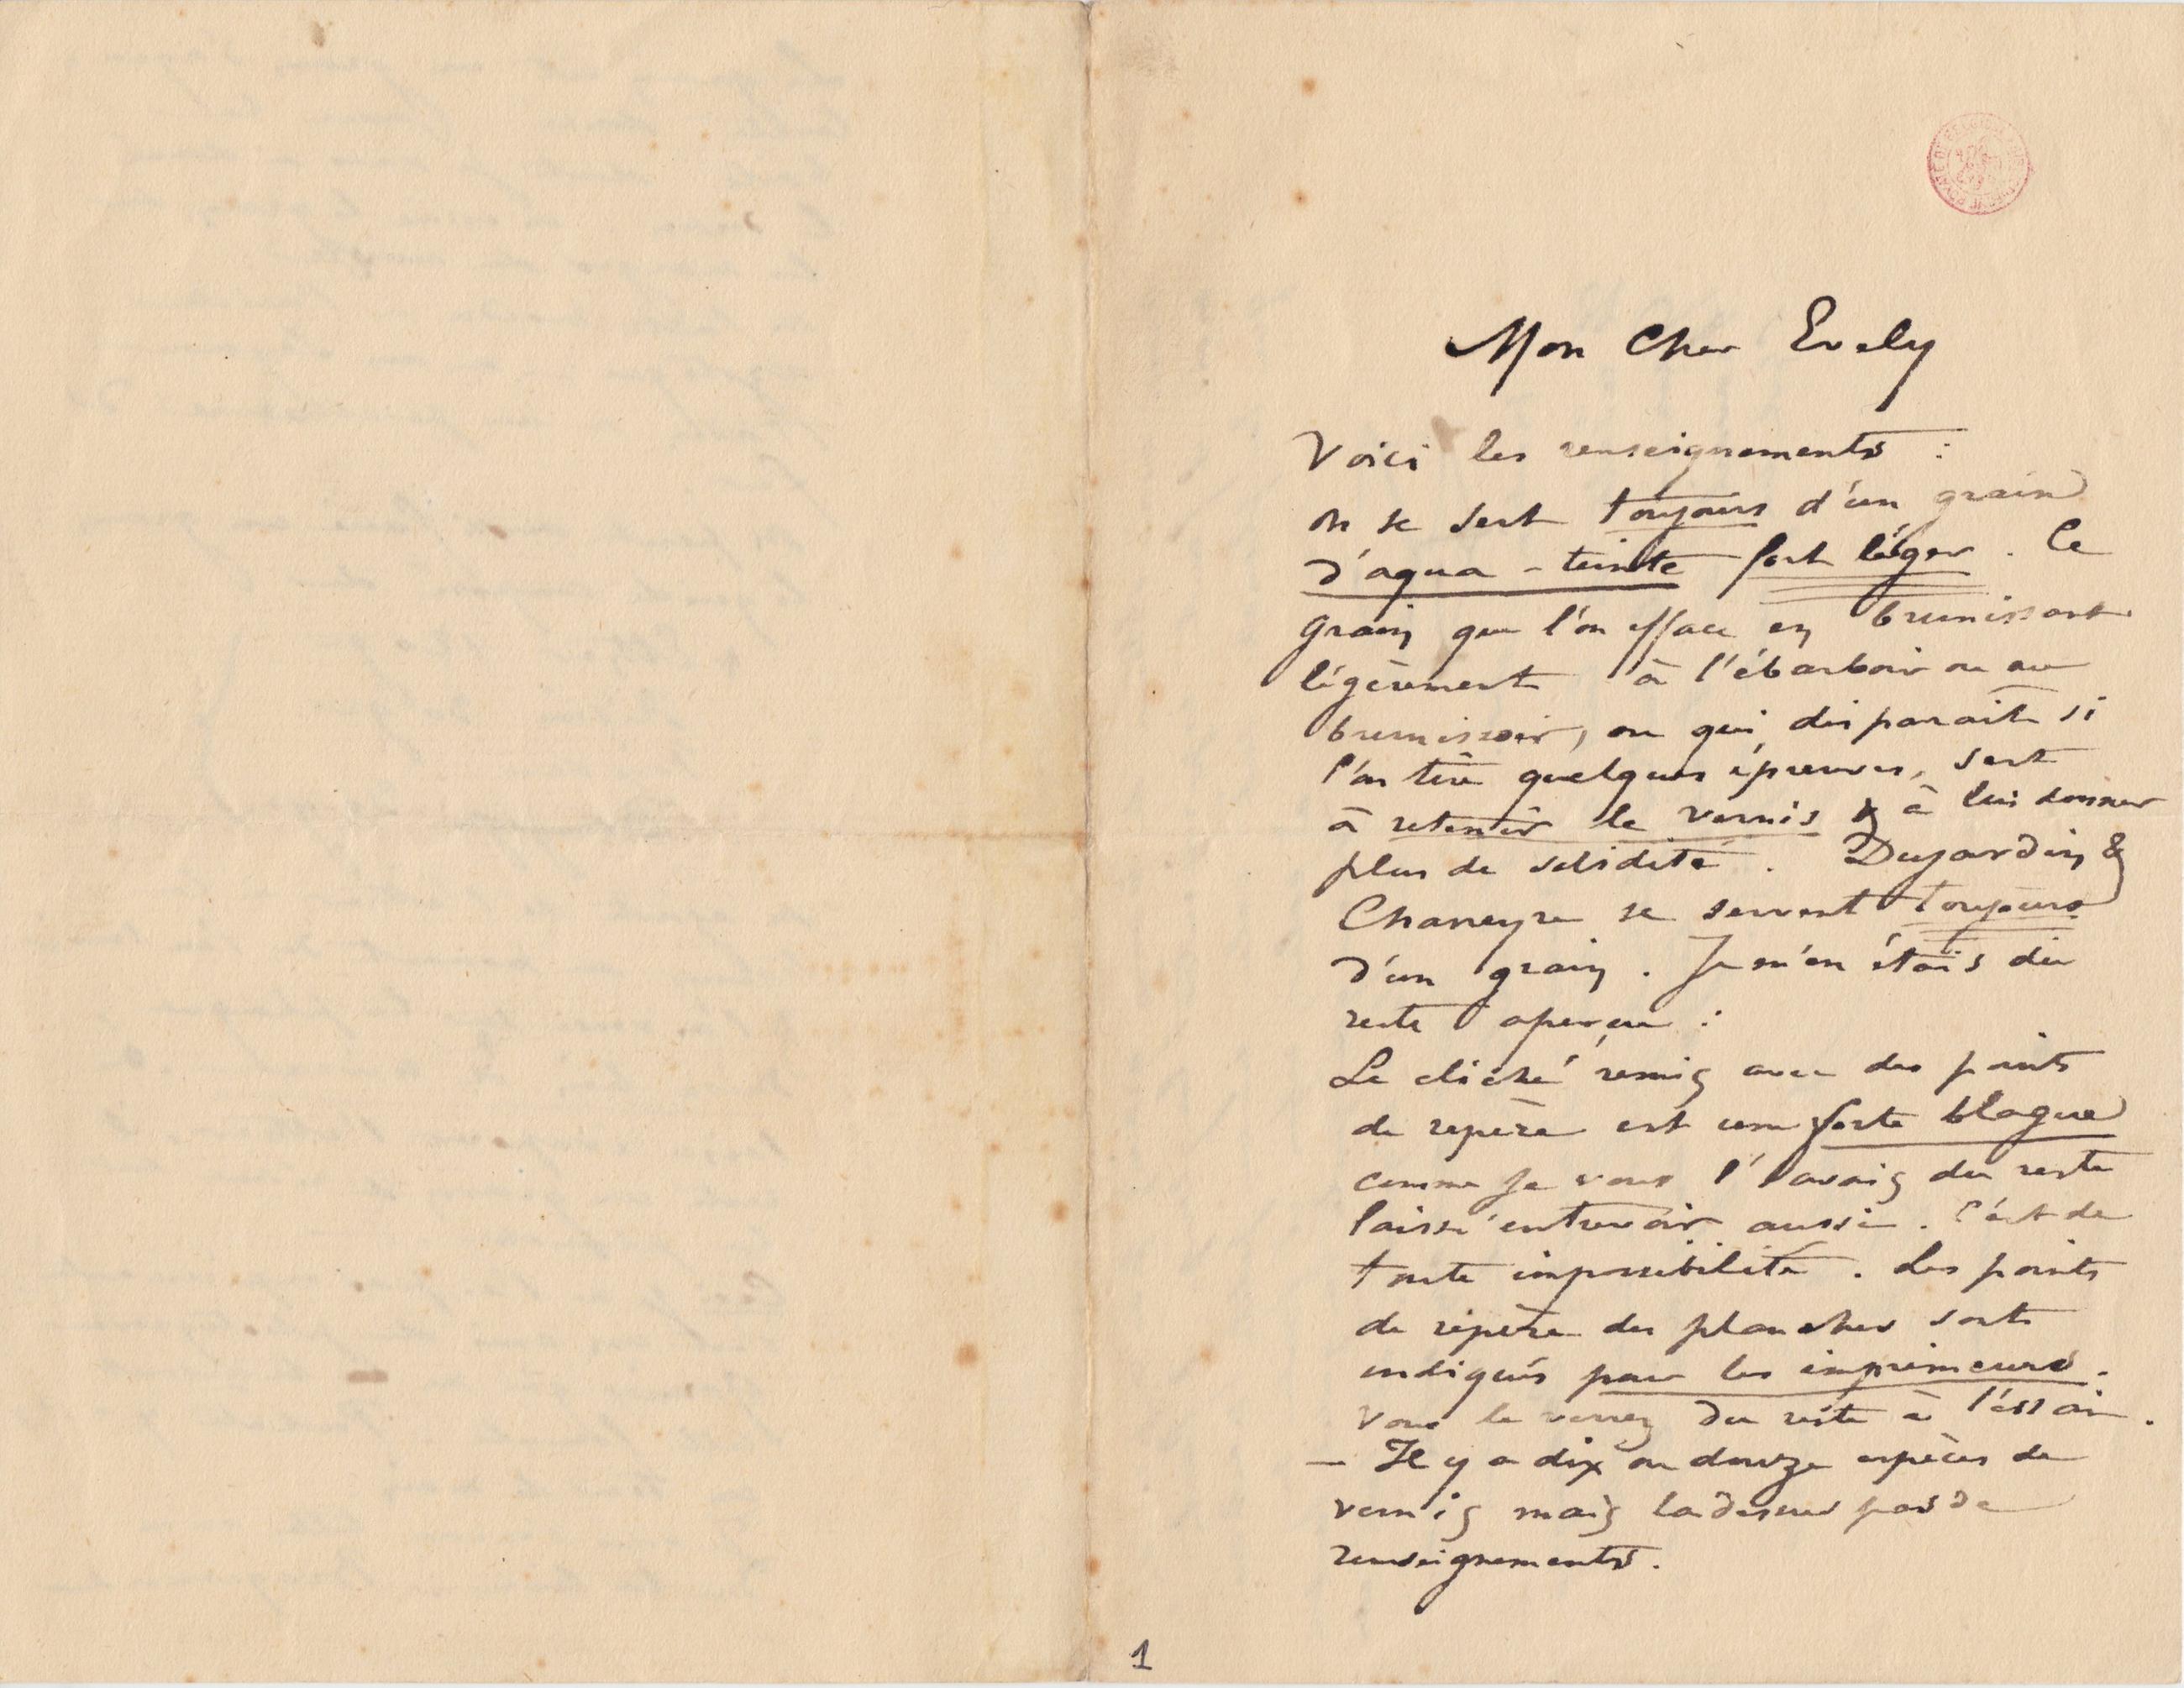 Mon Cher Evely
Voici les renseignements :
on se sert toujours d'un grain
d'aqua-teinte fort léger. Ce
grain que l'on efface en brunissant
légèrement à l'ébarboir ou au
brunissoir, ou qui disparait si
l'on tire quelques épreuves, sert
à retenir le vernis & à lui donner
plus de solidité. Dujardin &
se servent toujours
d'un grain. Je m'en étais du
reste aperçu :
Le cliché remis avec des points
de repère est une forte blague
comme je vous l'avais du reste
laissé entrevoir aussi. C'est de
toute impossibilité. Les points
de repère des planches sont
indiqués pour les imprimeurs.
Vous le verrez du reste à l'éssai.
— Il y a dix ou douze espèces de
vernis mais ladessus pas de
renseignements.
1